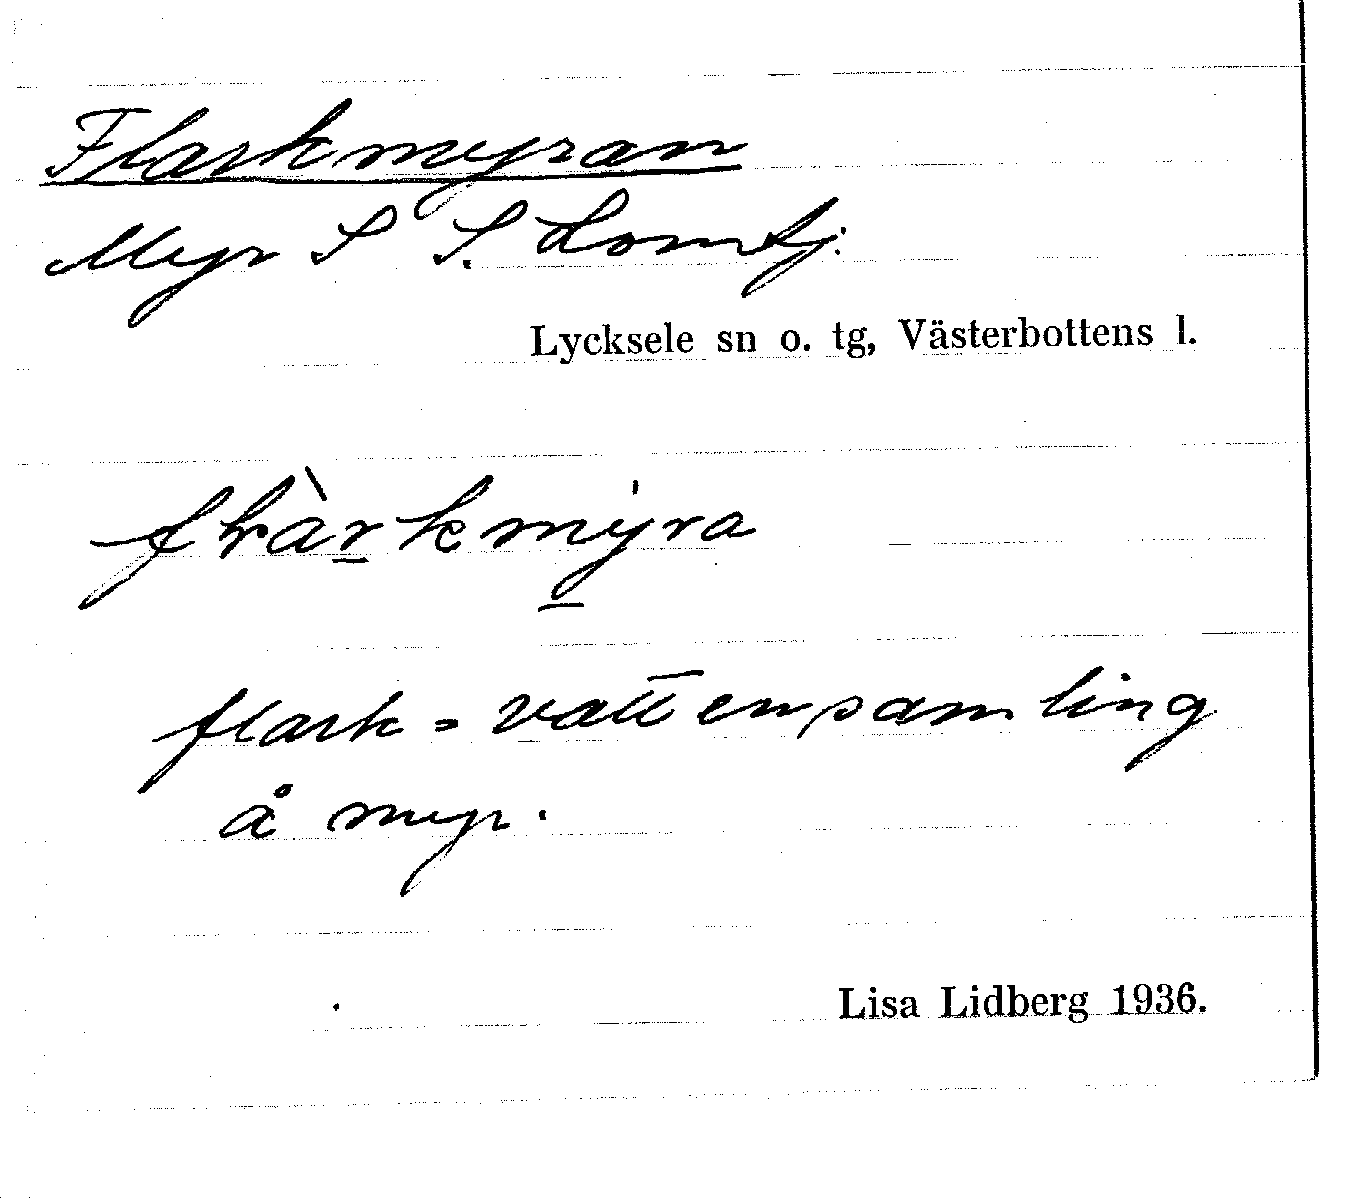 Flarkmyran
Myr S S. Lomtj.
Lycksele sn o. tg, Västerbottens l.
flàrkmýra
flark = vattensamling
å myr.
Lisa Lidberg 1936.